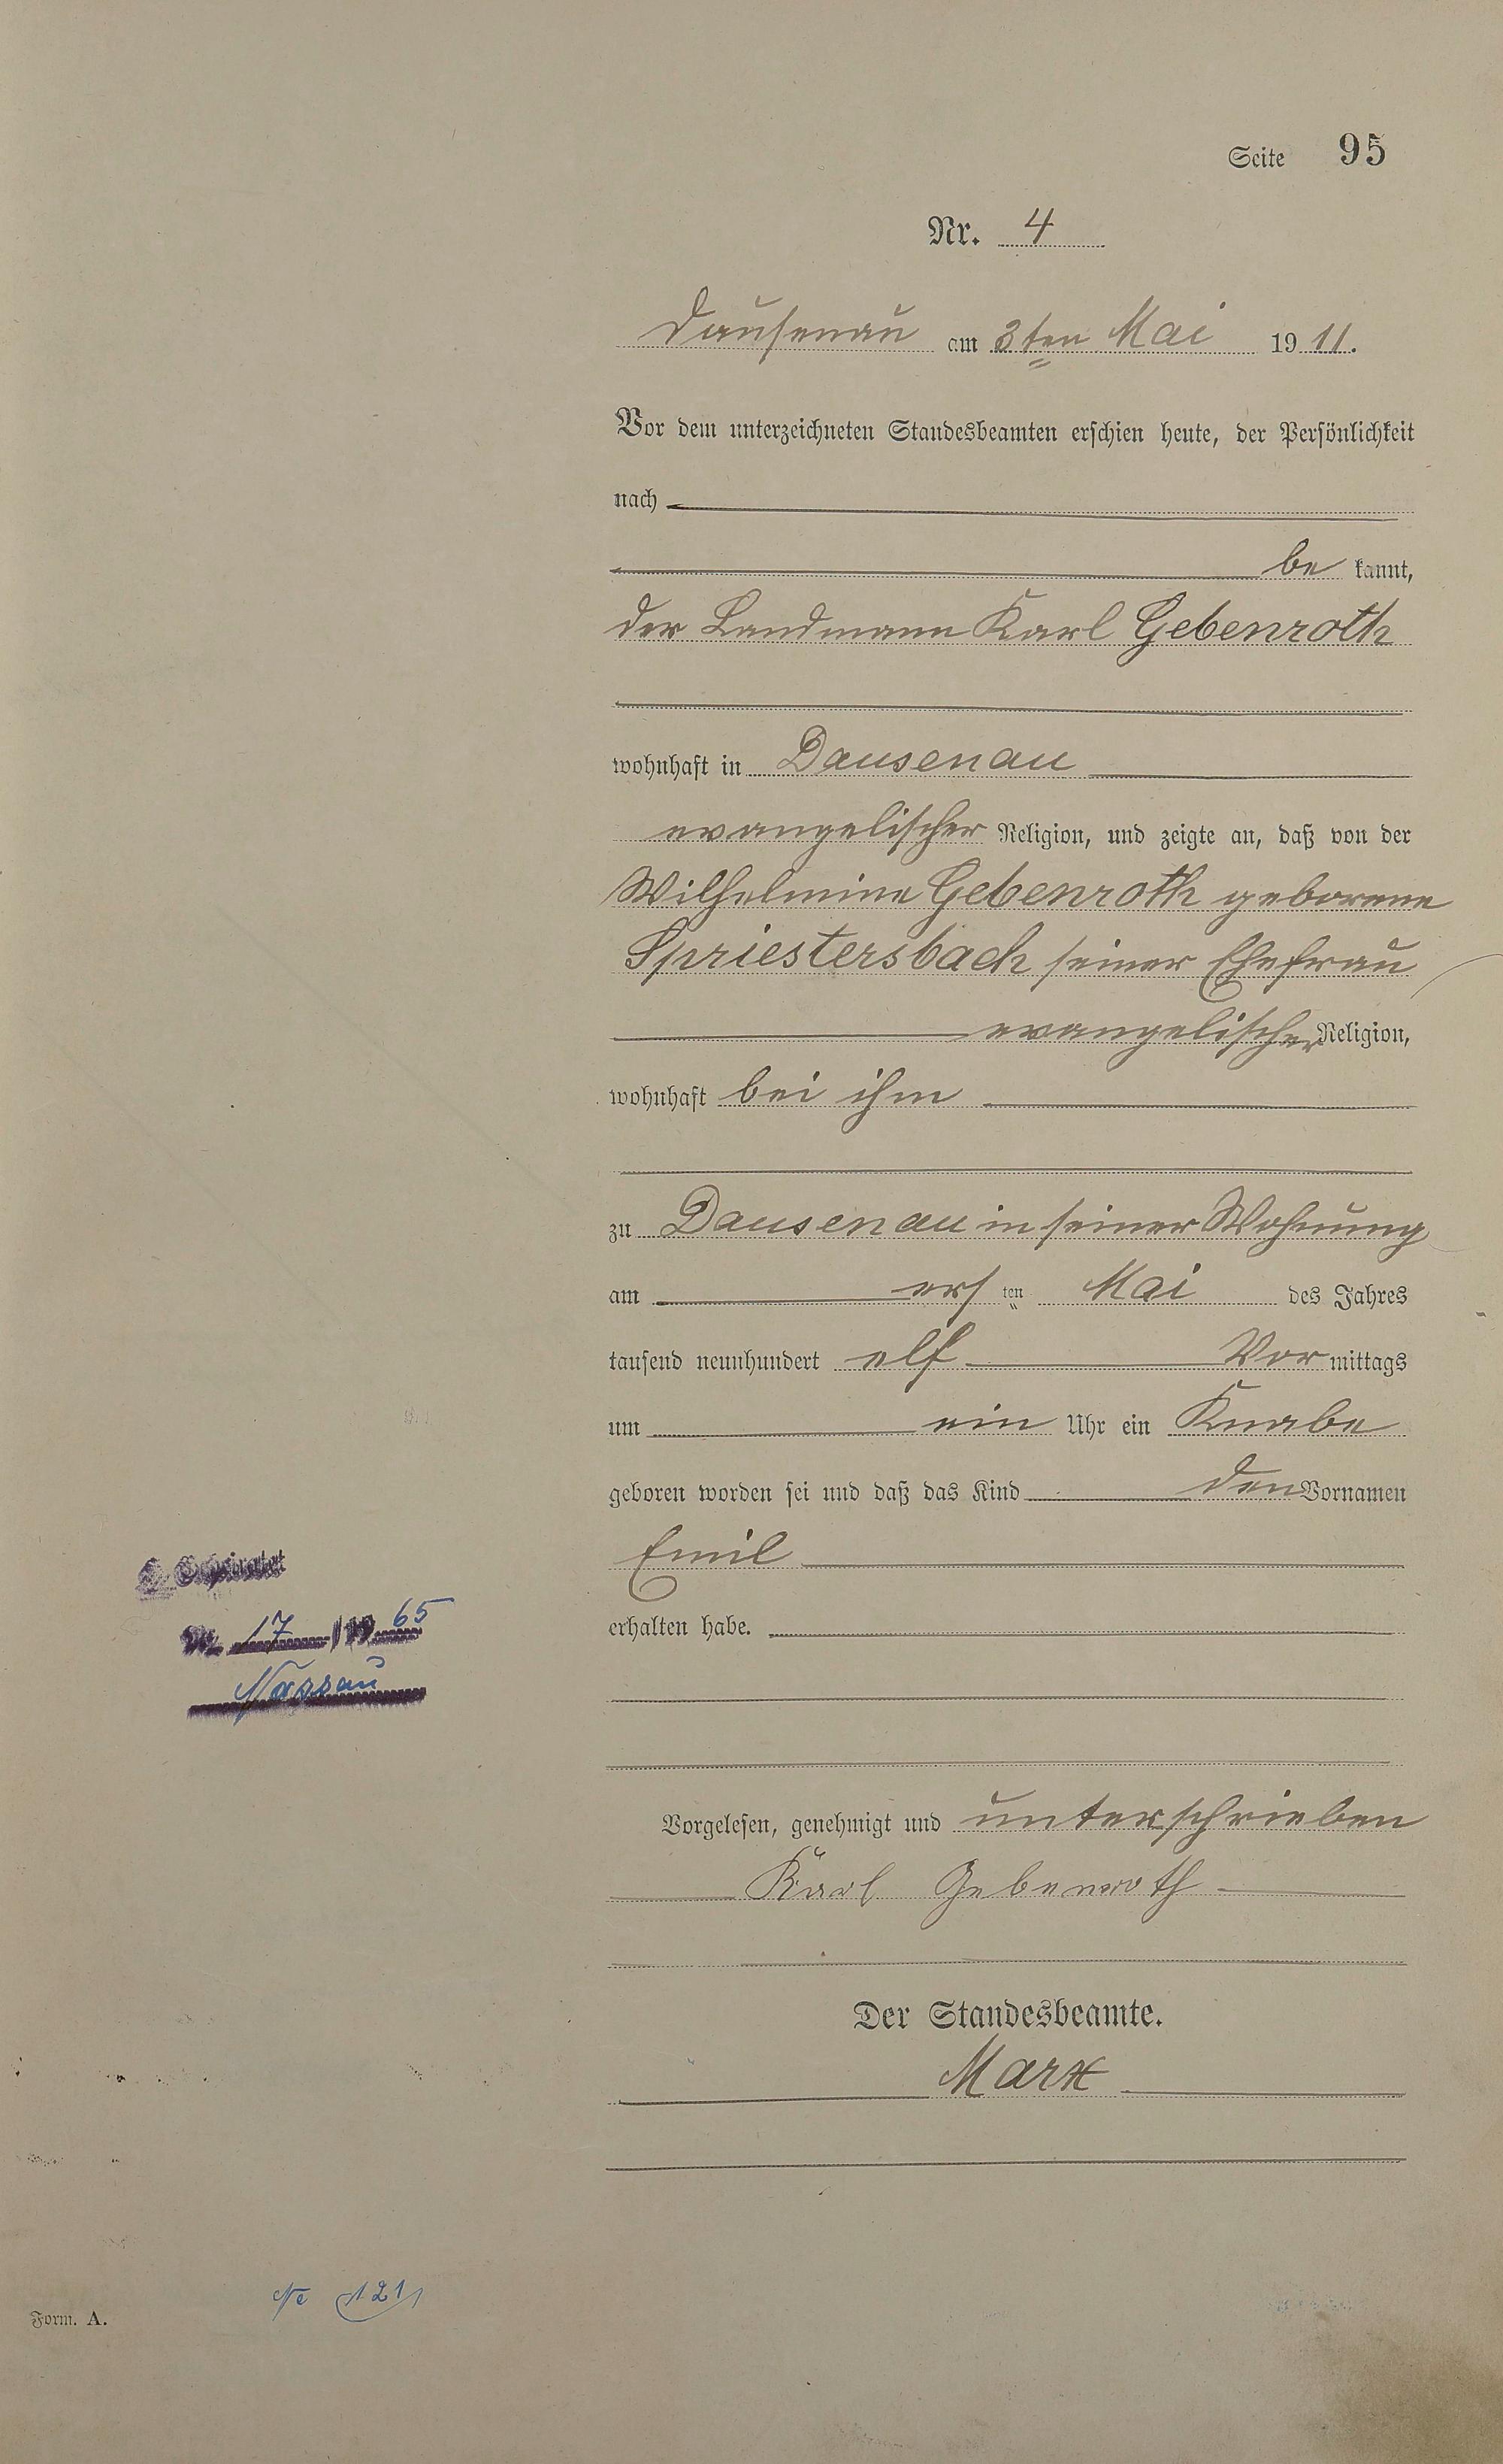 Seite 95
Nr. 4
Dausenau am 3ten Mai 1911.
Vor dem unterzeichneten Standesbeamten erschien heute, der Persönlichkeit
nach
be kannt,
der Landmann Karl Gebenroth
wohnhaft in Dausenau
evangelischer Religion, und zeigte an, daß von der
Wilhelmine Gebenroth geborene
Spriestersbach seiner Ehefrau
evangelischer Religion,
wohnhaft bei ihm
zu Dausenau in seiner Wohnung
am ersten Mai des Jahres
tausend neunhundert elf Vormittags
um ein Uhr ein Knabe
geboren worden sei und daß das Kind den Vornamen
Emil
erhalten habe.
17 65
Nassau
Vorgelesen, genehmigt und unterschrieben
Karl Gebenroth
Der Standesbeamte.
Marx
121
Form. A.